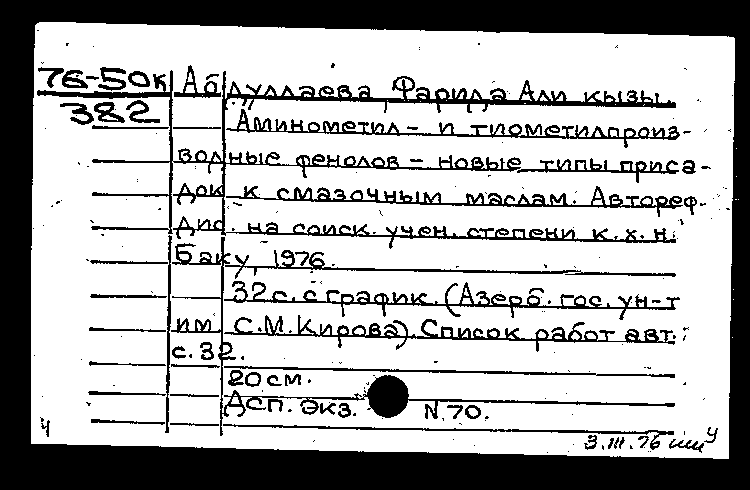 76-50к Абдуллаева, Фарида Али кызы.
382
Аминометил- и тиометилпроиз-
водные фенолов - новые типы приса-
док к смазочным маслам. Автореф.
дис. на соиск. учен. степени к.х.н.
Баку, 1976.
32 с. с график. (Азерб. гос. ун-т
им. С.М.Кирова). Список работ авт.:
с. 32.
20 см.
Дсп. Экз. N.70.
ч 3.III.76